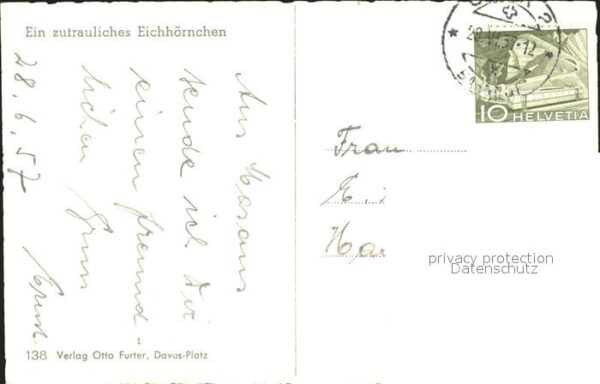 Ein zutrauliches Eichhörnchen
28.6.57
Aus
sende ich Dir
einen freund-
lichen Gruss
Ernst.
138 Verlag Otto Furter, Davos-Platz
28.VI.57-12
10 HELVETIA
Frau
E.
Ha
privacy protection
Datenschutz